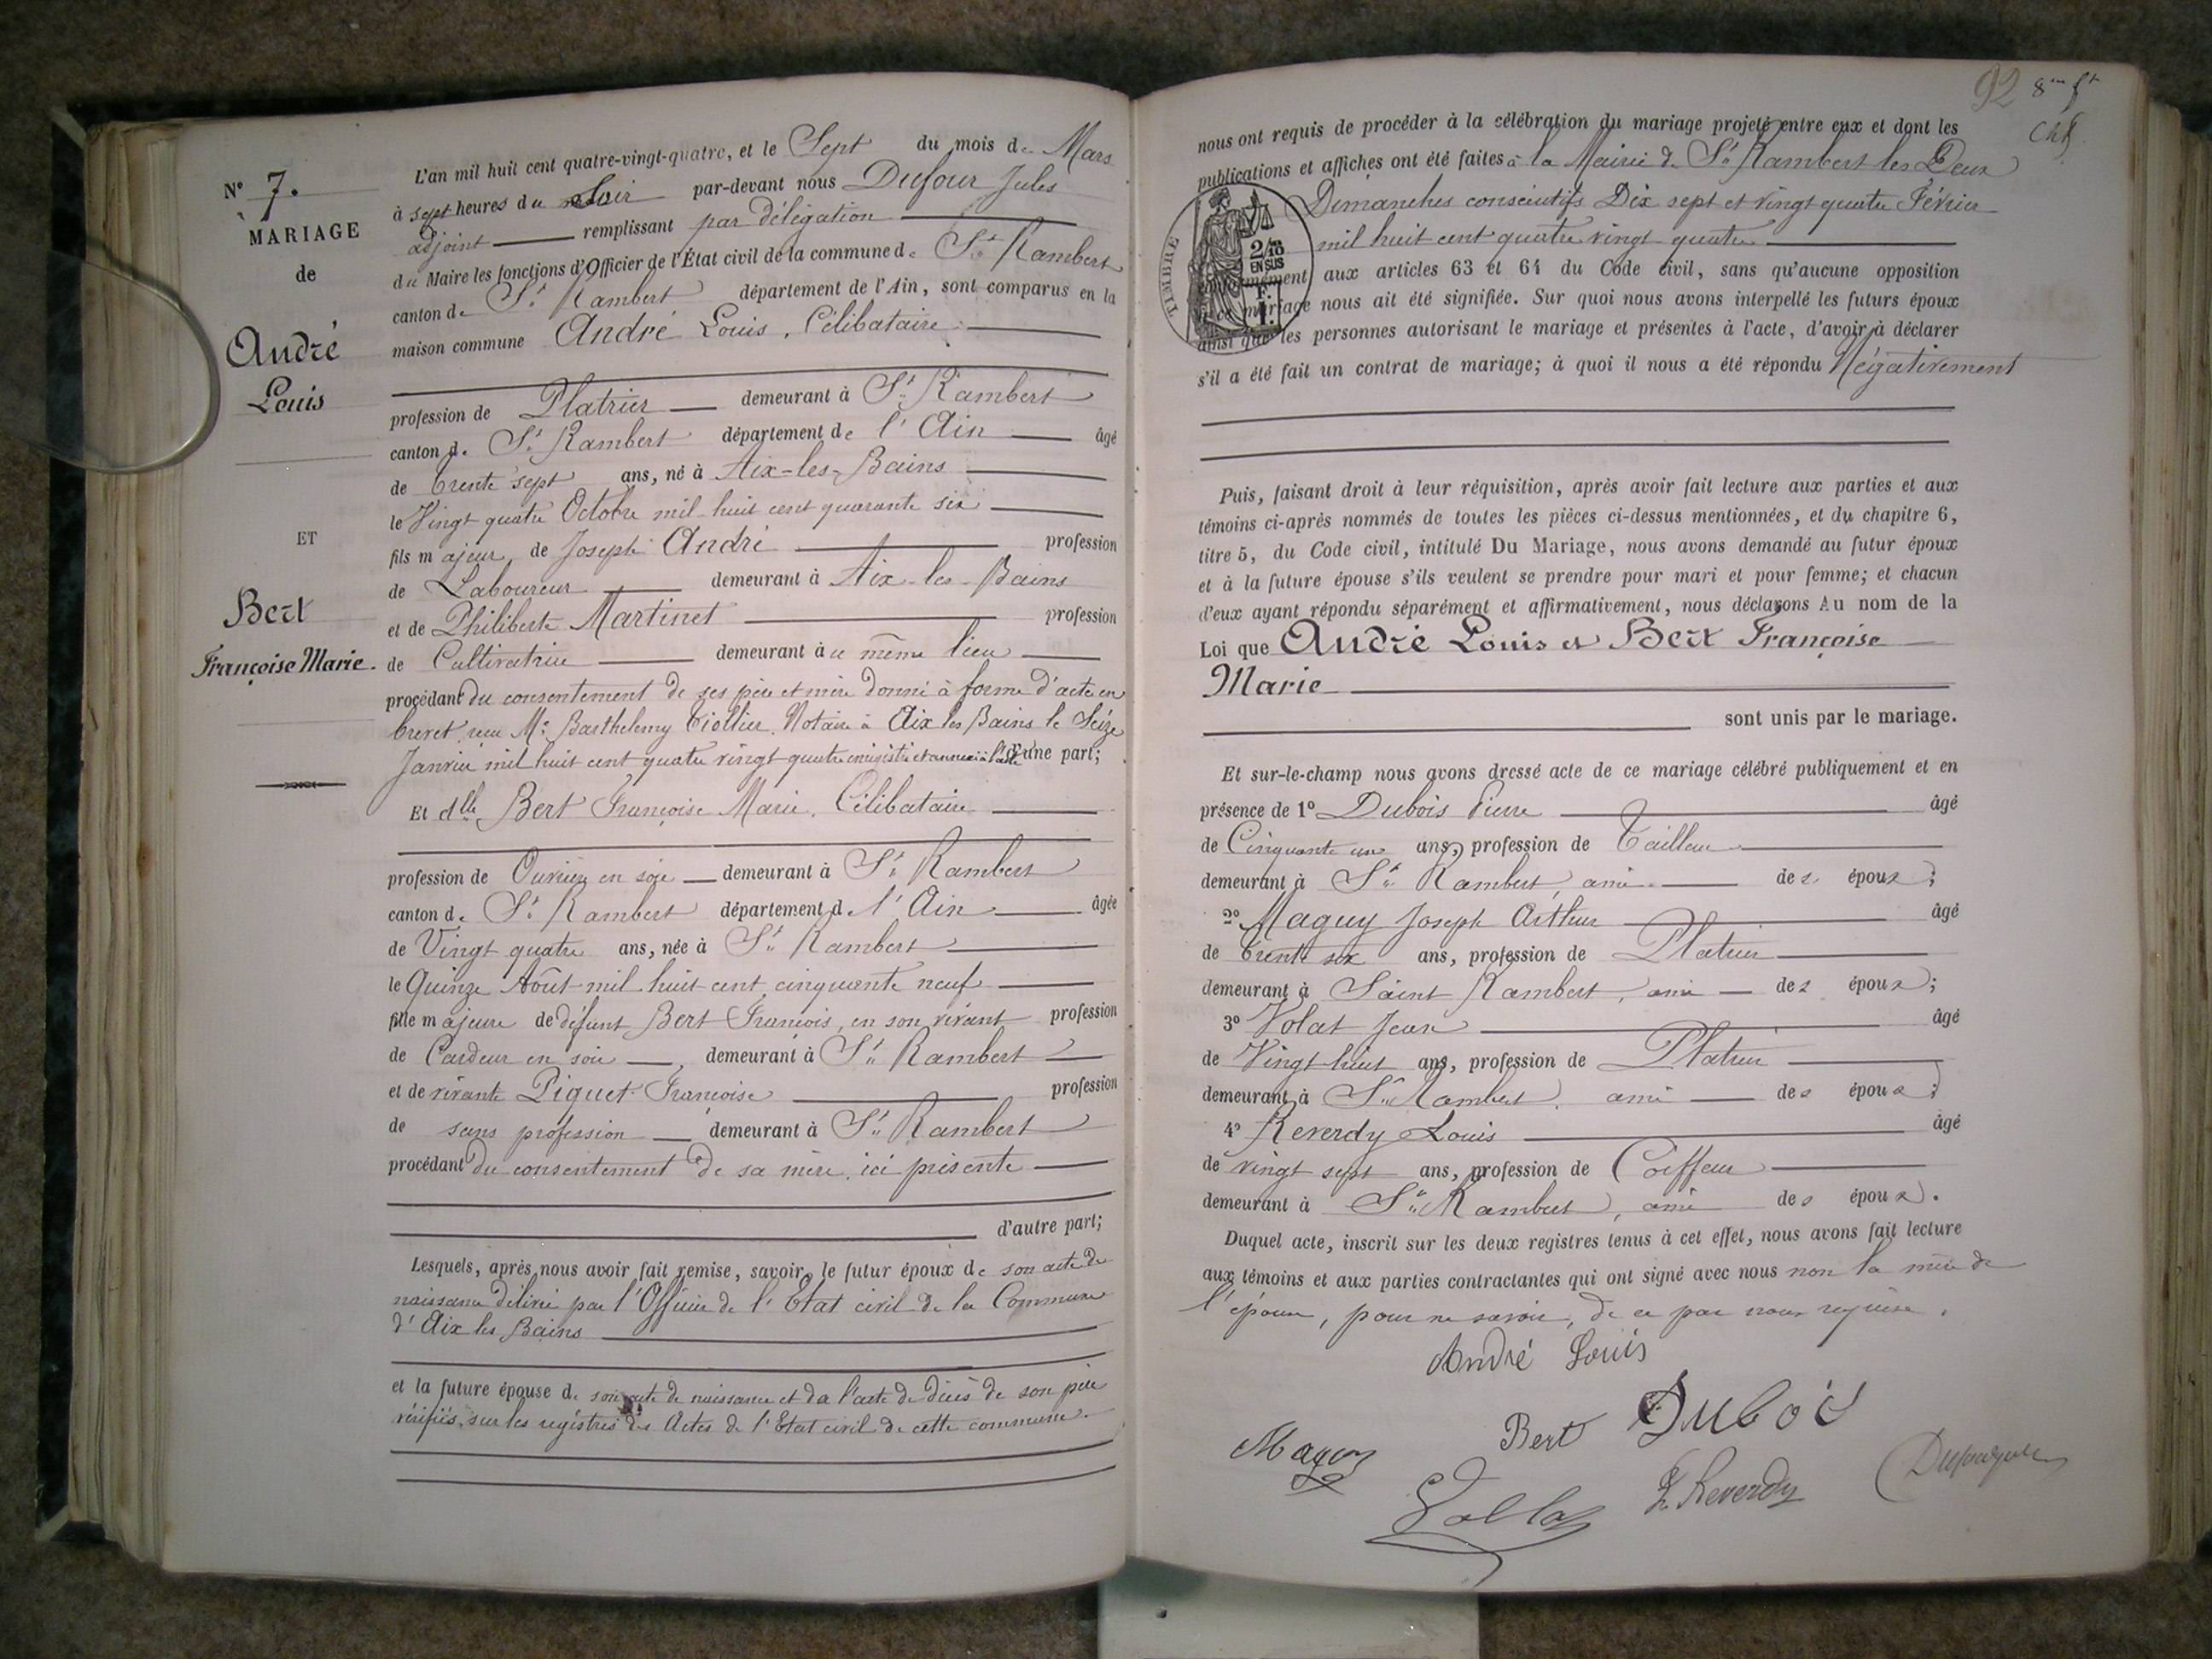 N° 7.
MARIAGE
de
André
Louis
ET
Bert
Françoise Marie.
L'an mil huit cent quatre-vingt-quatre, et le Sept du mois de Mars
à sept heures du soir par-devant nous Dufour Jules
adjoint remplissant par délégation
du Maire les fonctions d'Officier de l'État civil de la commune de St Rambert
canton de St Rambert département de l'Ain, sont comparus en la
maison commune André Louis, Célibataire
profession de Platrier demeurant à St Rambert
canton de St Rambert département de l'Ain âgé
de trente sept ans, né à Aix-les-Bains
le Vingt quatre Octobre mil huit cent quarante six
fils majeur de Joseph André profession
de Laboureur demeurant à Aix-les-Bains
et de Philiberte Martinet profession
de Cultivatrice demeurant à ce même lieu
procédant du consentement de ses père et mère donné à forme d'acte en
brevet reçu Me Barthelemy Tiollier Notaire à Aix les Bains le Seize
Janvier mil huit cent quatre vingt quatre enregistré et annexé à l'acte d'une part;
Et dlle Bert Françoise Marie, Célibataire
profession de Ouvrière en soie demeurant à St Rambert
canton de St Rambert département de l'Ain âgée
de Vingt quatre ans, née à St Rambert
le Quinze Août mil huit cent cinquante neuf
fille majeure de défunt Bert François, en son vivant profession
de Cardeur en soie, demeurant à St Rambert
et de vivante Piquet Françoise profession
de sans profession demeurant à St Rambert
procédant du consentement de sa mère ici présente
d'autre part;
Lesquels, après nous avoir fait remise, savoir, le futur époux de son acte de
naissance délivré par l'Officier de l'Etat civil de la Commune
d'Aix les Bains
et la future épouse de son acte de naissance et de l'acte de décès de son père
vérifiés sur les registres des Actes de l'Etat civil de cette commune.
92 8me ft
nous ont requis de procéder à la célébration du mariage projeté entre eux et dont les
publications et affiches ont été faites à la Mairie de St Rambert les Deux
Dimanches consécutifs Dix sept et vingt quatre Février
mil huit cent quatre vingt quatre
TIMBRE
2/10
EN SUS
conformément aux articles 63 et 64 du Code civil, sans qu'aucune opposition
à ce mariage nous ait été signifiée. Sur quoi nous avons interpellé les futurs époux
ainsi que les personnes autorisant le mariage et présentes à l'acte, d'avoir à déclarer
s'il a été fait un contrat de mariage; à quoi il nous a été répondu Négativement
Puis, faisant droit à leur réquisition, après avoir fait lecture aux parties et aux
témoins ci-après nommés de toutes les pièces ci-dessus mentionnées, et du chapitre 6,
titre 5, du Code civil, intitulé Du Mariage, nous avons demandé au futur époux
et à la future épouse s'ils veulent se prendre pour mari et pour femme; et chacun
d'eux ayant répondu séparément et affirmativement, nous déclarons Au nom de la
Loi que André Louis et Bert Françoise
Marie
sont unis par le mariage.
Et sur-le-champ nous avons dressé acte de ce mariage célébré publiquement et en
présence de 1° Dubois Pierre âgé
de Cinquante un ans, profession de Tailleur
demeurant à St Rambert, ami des époux;
2° Maguy Joseph Arthur âgé
de trente six ans, profession de Platrier
demeurant à Saint Rambert, ami des époux;
3° Volat Jean âgé
de Vingt huit ans, profession de Platrier
demeurant à St Rambert, ami des époux;
4° Reverdy Louis âgé
de vingt sept ans, profession de Coiffeur
demeurant à St Rambert, ami des époux.
Duquel acte, inscrit sur les deux registres tenus à cet effet, nous avons fait lecture
aux témoins et aux parties contractantes qui ont signé avec nous non la mère de
l'épouse, pour ne savoir, de ce par nous requise.
André Louis
Bert Dubois
L. Reverdy